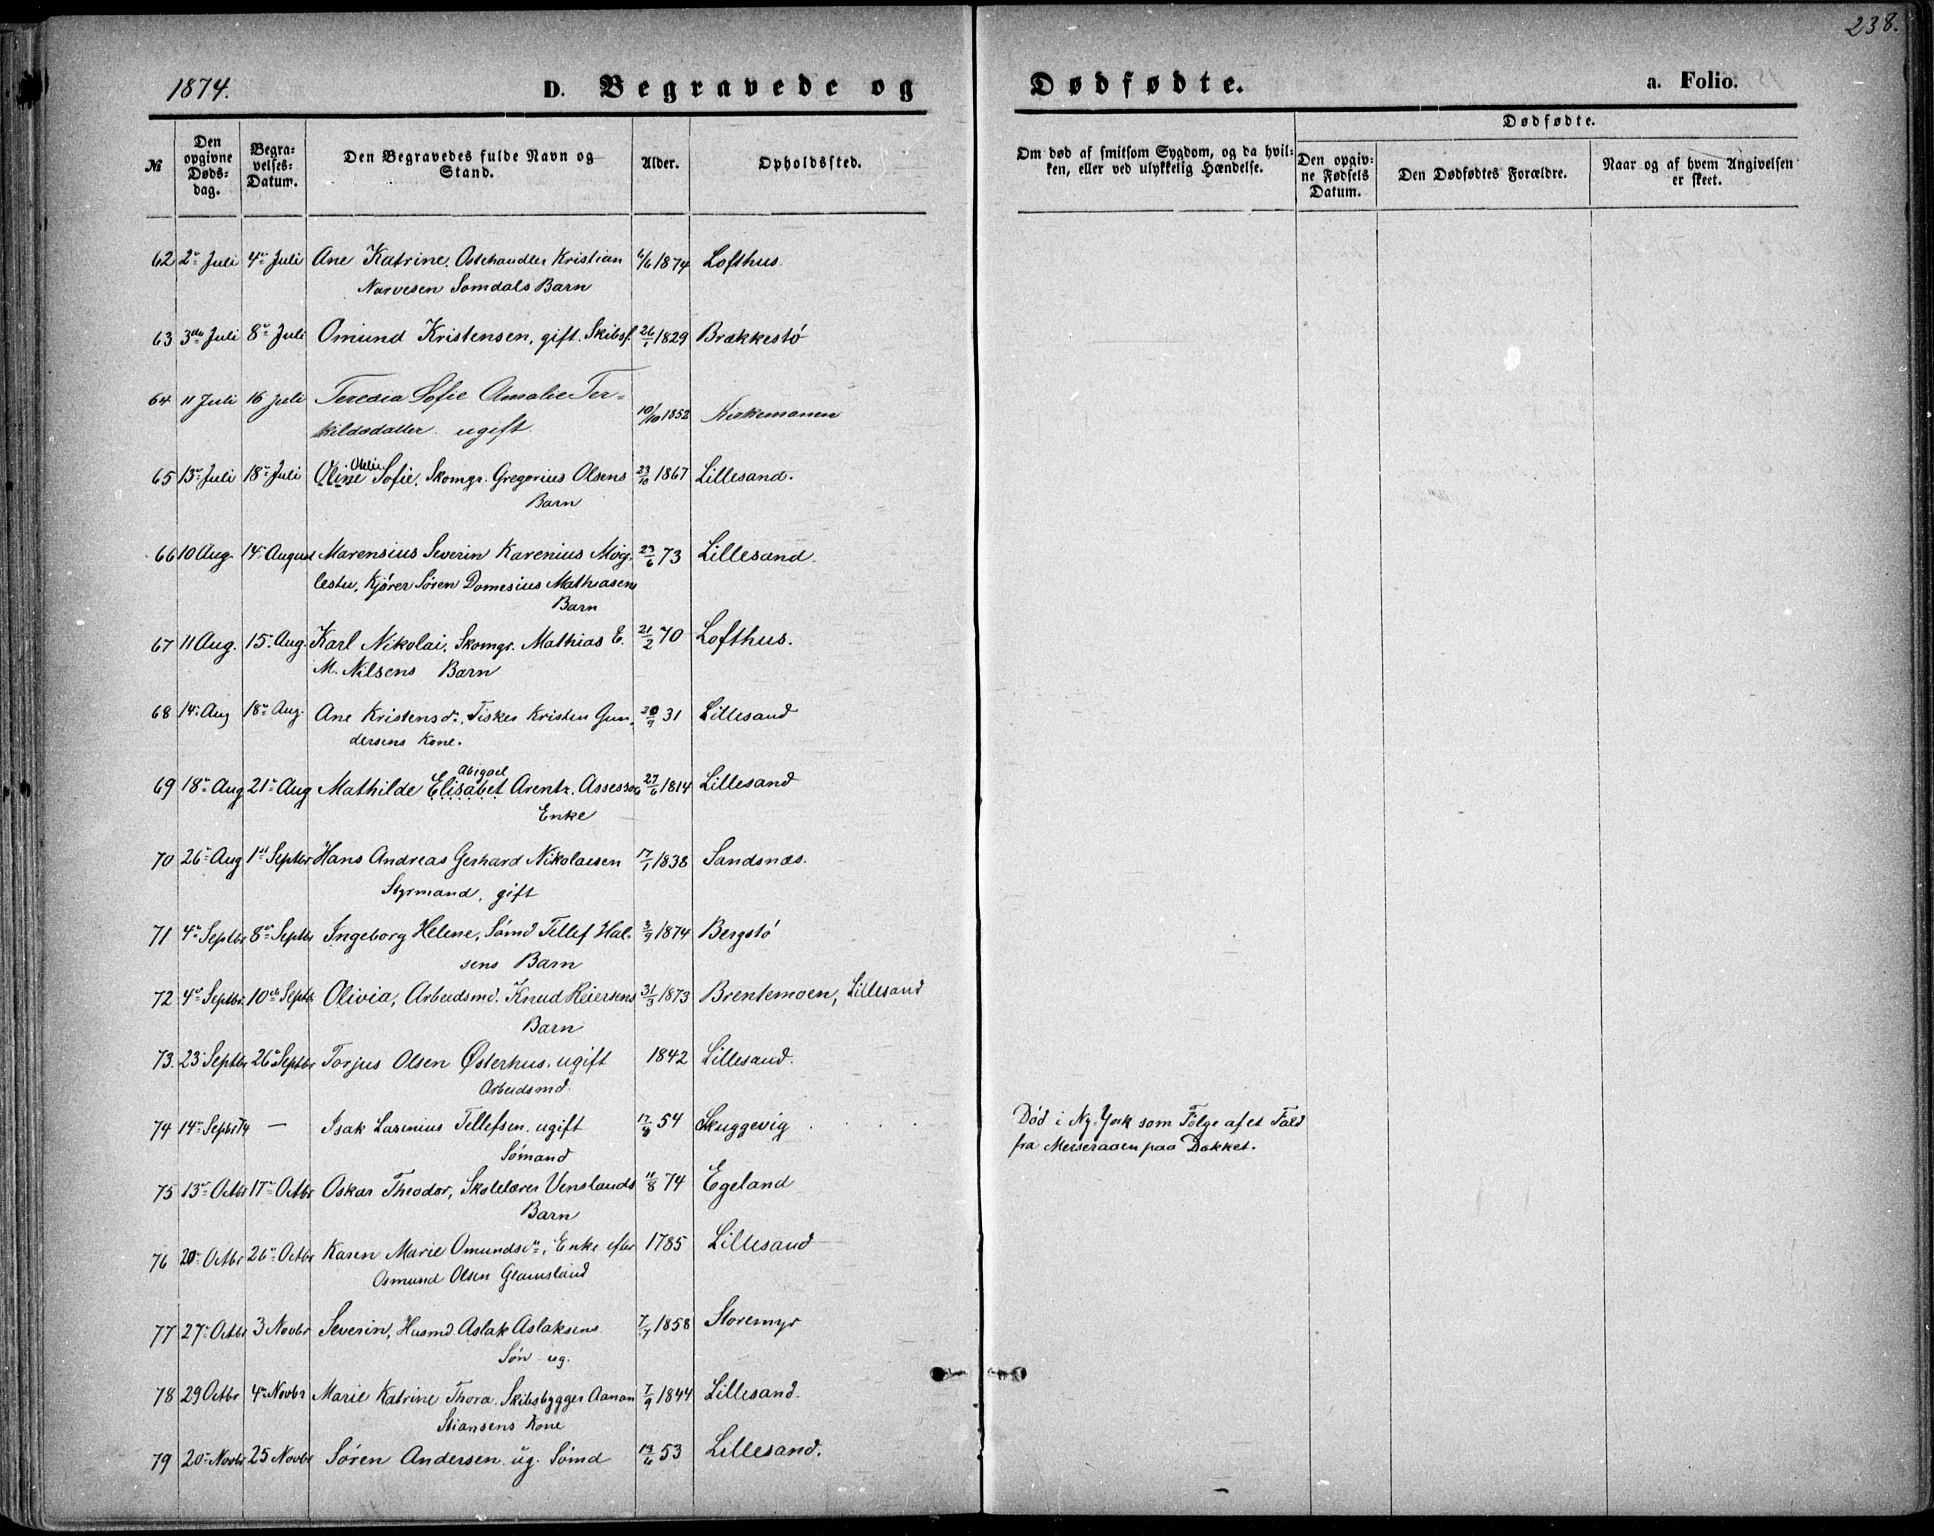 238.
1874. D. Begravede og Dødfødte. a. Folio.
№
Den opgivne Dødsdag.
Begravelses-Datum.
Den Begravedes fulde Navn og Stand.
Alder.
Opholdssted.
Om død af smitsom Sygdom, og da hvilken, eller ved ulykkelig Hændelse.
Dødfødte.
Den opgivne Fødsels Datum.
Den Dødfødtes Forældre.
Naar og af hvem Angivelsen er skeet.
62 2den Juli 4de Juli Ane Katrine, Ostehandler Kristian 6/6 1874 Lofthus.
Norvesen Somdals Barn
63 3die Juli 8de Juli Omund Kristensen, gift. Skibsf. 26/1 1829 Brækkestø
64 11 Juli 16 Juli Teresia Sofie Amalie Ter=
kildsdatter. ugift. 10/10 1852 Kirkemonen
65 13de Juli 18de Juli Oline Sofie, Skomgr. Gregorius Olsens 23/10 1867 Lillesand.
Barn
66 10 Aug. 14. August Marensius Severin Karenius Møg- 23/6 73 Lillesand.
lestu, Kjører Søren Domesius Mathiasens
Barn
67 11 Aug. 15. Aug. Karl Nikolai, Skomgr. Mathias E. 21/2 70 Lofthus.
M. Nilsens Barn
68 14. Aug 18de Aug. Ane Kristensdr., Fisker Kristen Gun- 20/9 31 Lillesand
dersens Kone.
Abigael
69 18de Aug 21. Aug Mathilde Elisabet Arentz. Assessor 27/6 1814 Lillesand
Enke
70 26. Aug 1ste Septbr Hans Andreas Gerhard Nikolaisen 17/1 1838 Sandsnæs.
Styrmand, gift
71 4de Septbr 8de Septbr Ingeborg Helene, Sømd Tellef Hal- 3/9 1874 Bergstø
sens Barn
72 4de Septbr. 10de Septb Olivia, Arbeidsmd. Knud Reiersens 31/3 1873 Brentemoen, Lillesand
Barn
73. 23 Septbr 26de Septbr Torjus Olsen Østerhus, ugift 1842 Lillesand.
Arbeidsmd.
74 14de Septbr 74 — Isak Lasinius Tellefsen, ugift 17/8 54 Skuggevig . . . . Død i Ny-York som Følge af et Fald
Sømand fra Merseraaen paa Dækket.
75 13de Octbr 17de Octbr Oskar Theodor, Skolelærer Venslands 11/8 74 Egeland
Barn
76 20. Octbr 26. Octbr Karen Marie Omundsdr., Enke efter 1785 Lillesand
Osmund Olsen Glamsland
77 27. Octbr 3 Novbr Severin, Husmd Aslak Aslaksens 7/7 1858 Storemyr
Søn ug.
78 29 Octbr 4de Novbr Marie Katrine Thora. Skibsbygger Aanon 7/9 1844 Lillesand.
Stiansens Kone
79 20. Novbr 25 Novbr Søren Andersen ug. Sømd 13/6 53 Lillesand.